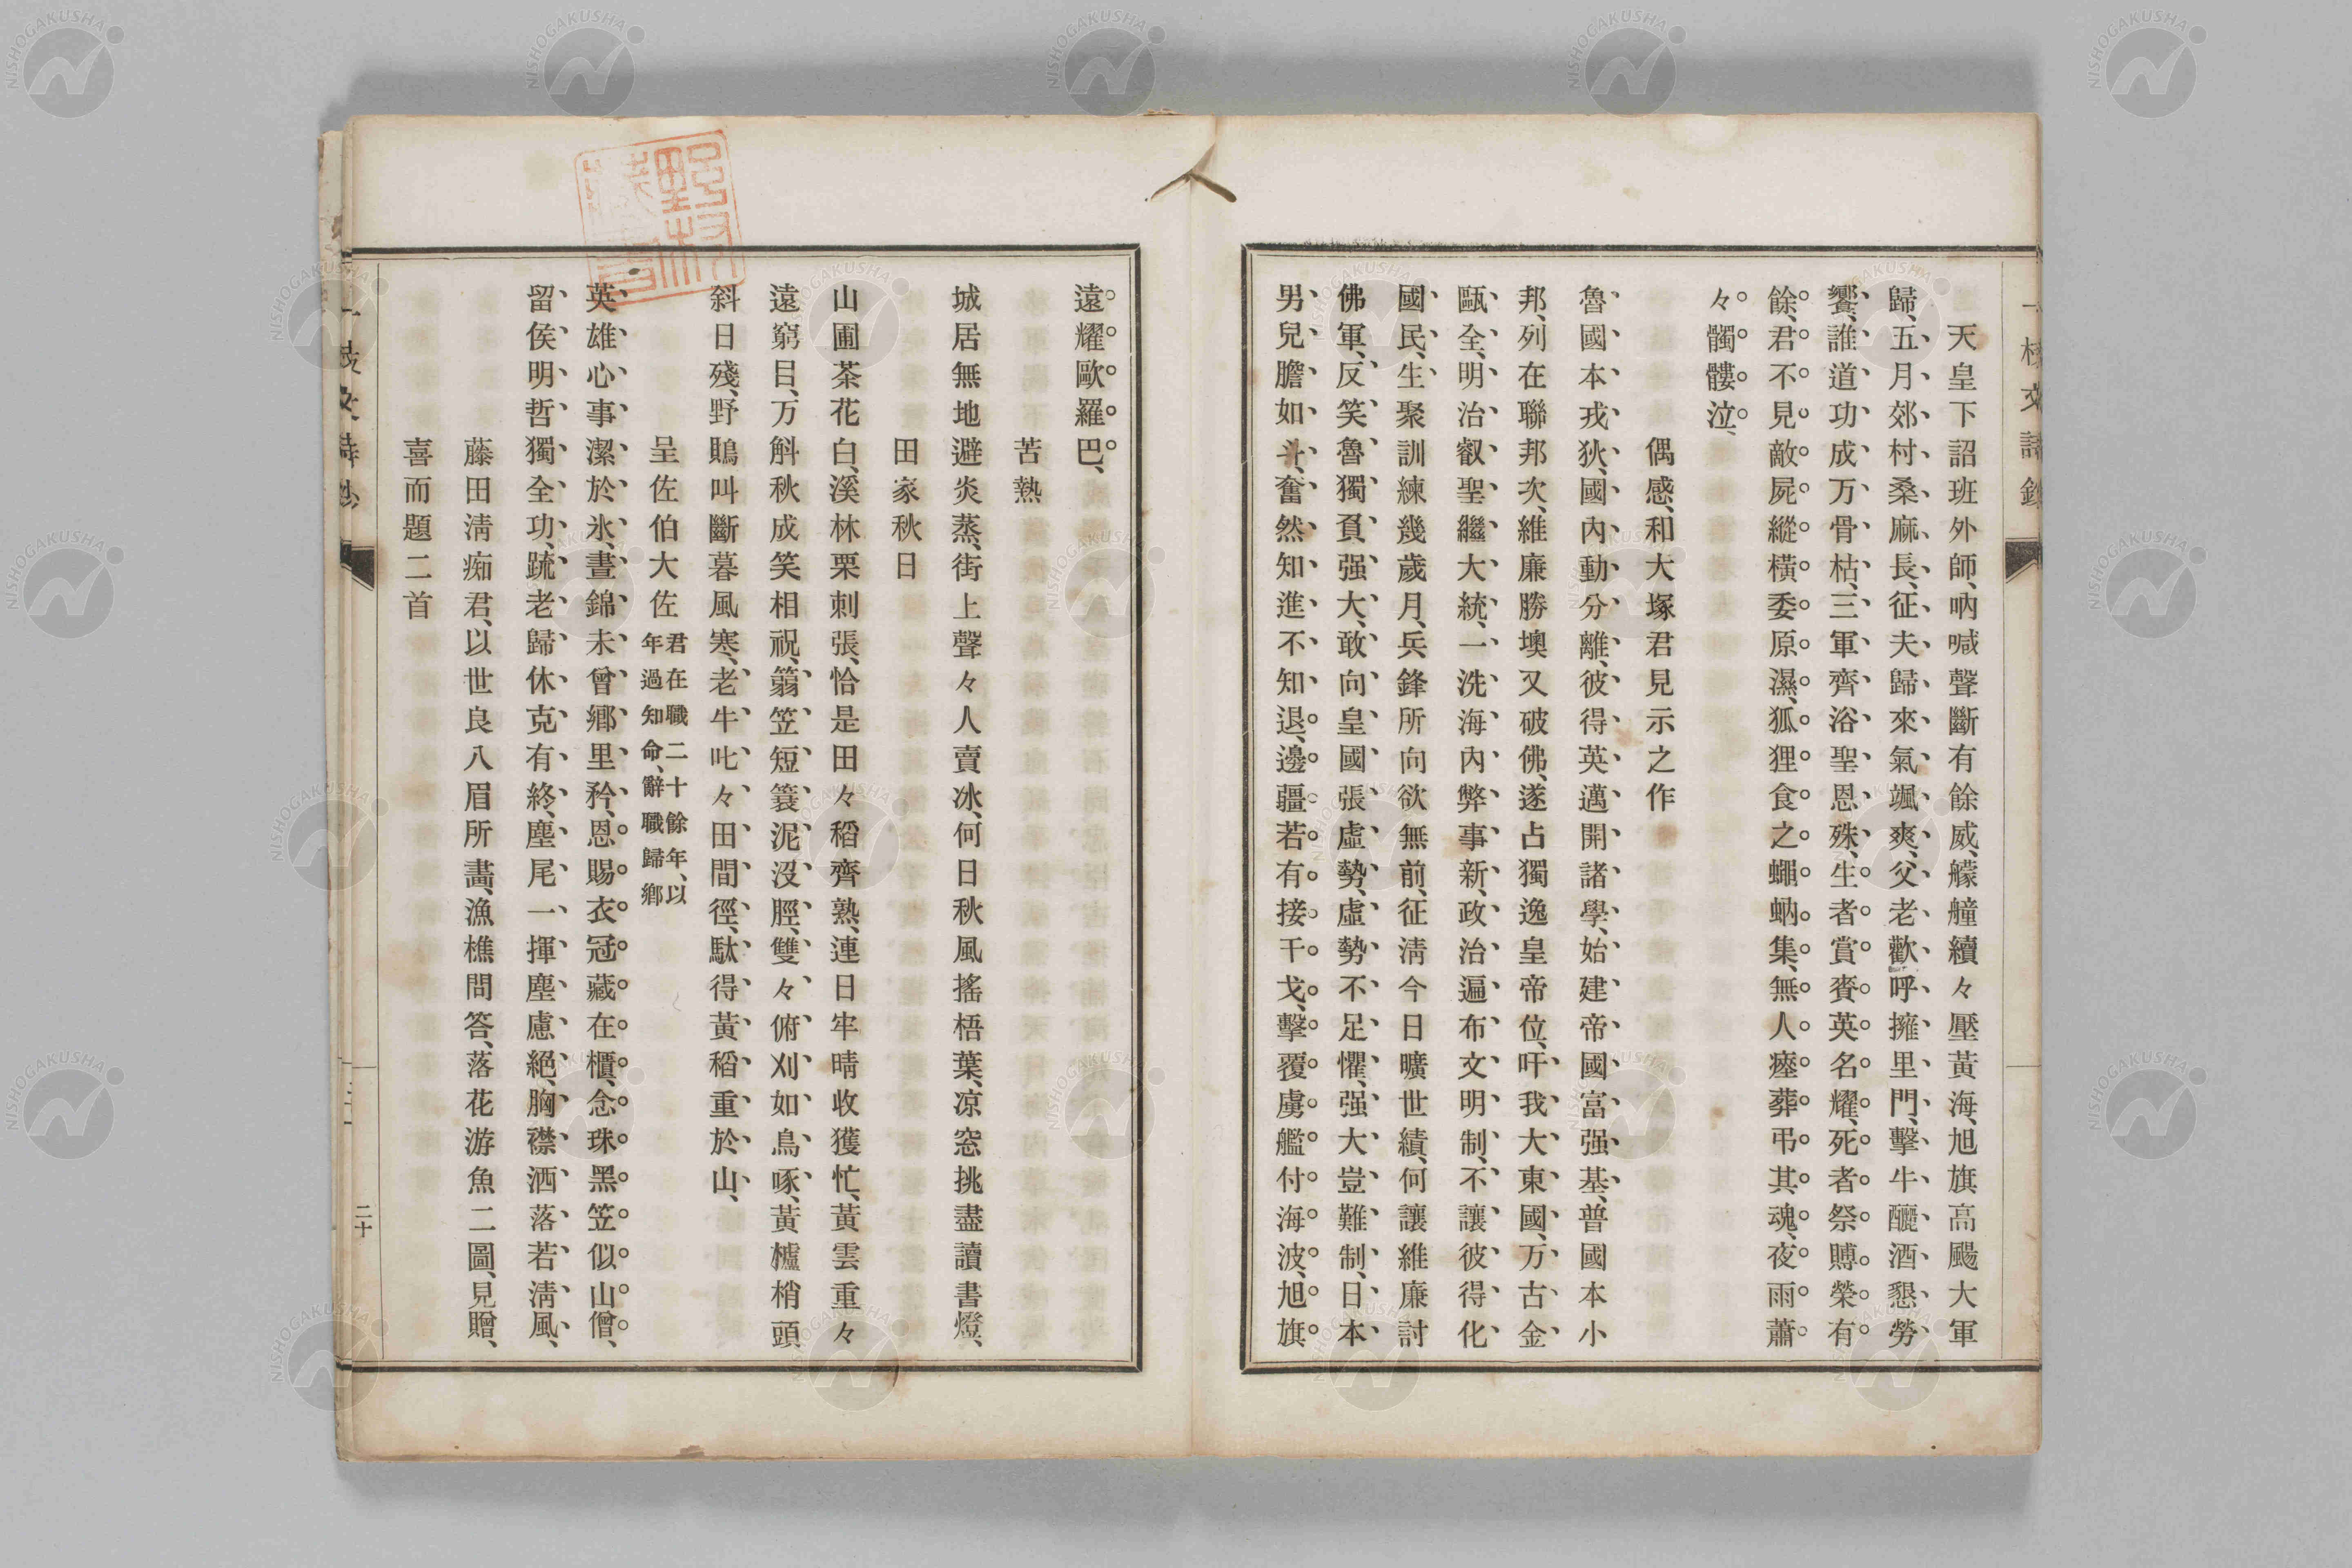 天皇下詔班外師、吶喊聲斷有餘威、艨艟續々壓黃海、旭旗高颺大軍
歸、五月郊村桑麻長、征夫歸來氣颯爽、父老歡呼擁里門、擊牛釃酒懇勞
饗、誰道功成万骨枯、三軍齊浴聖恩殊、生者賞賚英名耀、死者祭賻榮有
餘、君不見敵屍縱橫委原濕、狐狸食之蠅蚋集、無人瘞葬弔其魂、夜雨蕭
々髑髏泣、
偶感、和大塚君見示之作
魯國本戎狄、國內動分離、彼得英邁開諸學、始建帝國富强基、普國本小
邦、列在聯邦次、維廉勝墺又破佛、遂占獨逸皇帝位、吁我大東國、万古金
甌全、明治叡聖繼大統、一洗海內弊事新、政治遍布文明制、不讓彼得化
國民、生聚訓練幾歲月、兵鋒所向欲無前、征淸今日曠世績、何讓維廉討
佛軍、反笑魯獨負强大、敢向皇國張虛勢、虛勢不足懼、强大豈難制、日本
男兒膽如斗、奮然知進不知退、邊疆若有接干戈、擊覆虜艦付海波、旭旗
遠耀歐羅巴、
苦熱
城居無地避炎蒸、街上聲々人賣冰、何日秋風搖梧葉、凉窓挑盡讀書燈、
田家秋日
山圃茶花白、溪林栗刺張、恰是田々稻齊熟、連日牢晴收獲忙、黃雲重々
遠窮目、万斛秋成笑相祝、篛笠短簑泥沒脛、雙々俯刈如鳥啄、黃櫨梢頭
斜日殘、野鵙叫斷暮風寒、老牛叱々田間徑、駄得黃稻重於山、
呈佐伯大佐 君在職二十餘年、以年過知命、辭職歸鄉
英雄心事潔於氷、晝錦未曾鄉里矜、恩賜衣冠藏在櫃、念珠黑笠似山僧、
留侯明哲獨全功、疏老歸休克有終、塵尾一揮塵慮絕、胸襟洒落若淸風、
藤田淸痴君、以世良八眉所畫、漁樵問答、落花游魚二圖、見贈、
喜而題二首
二十